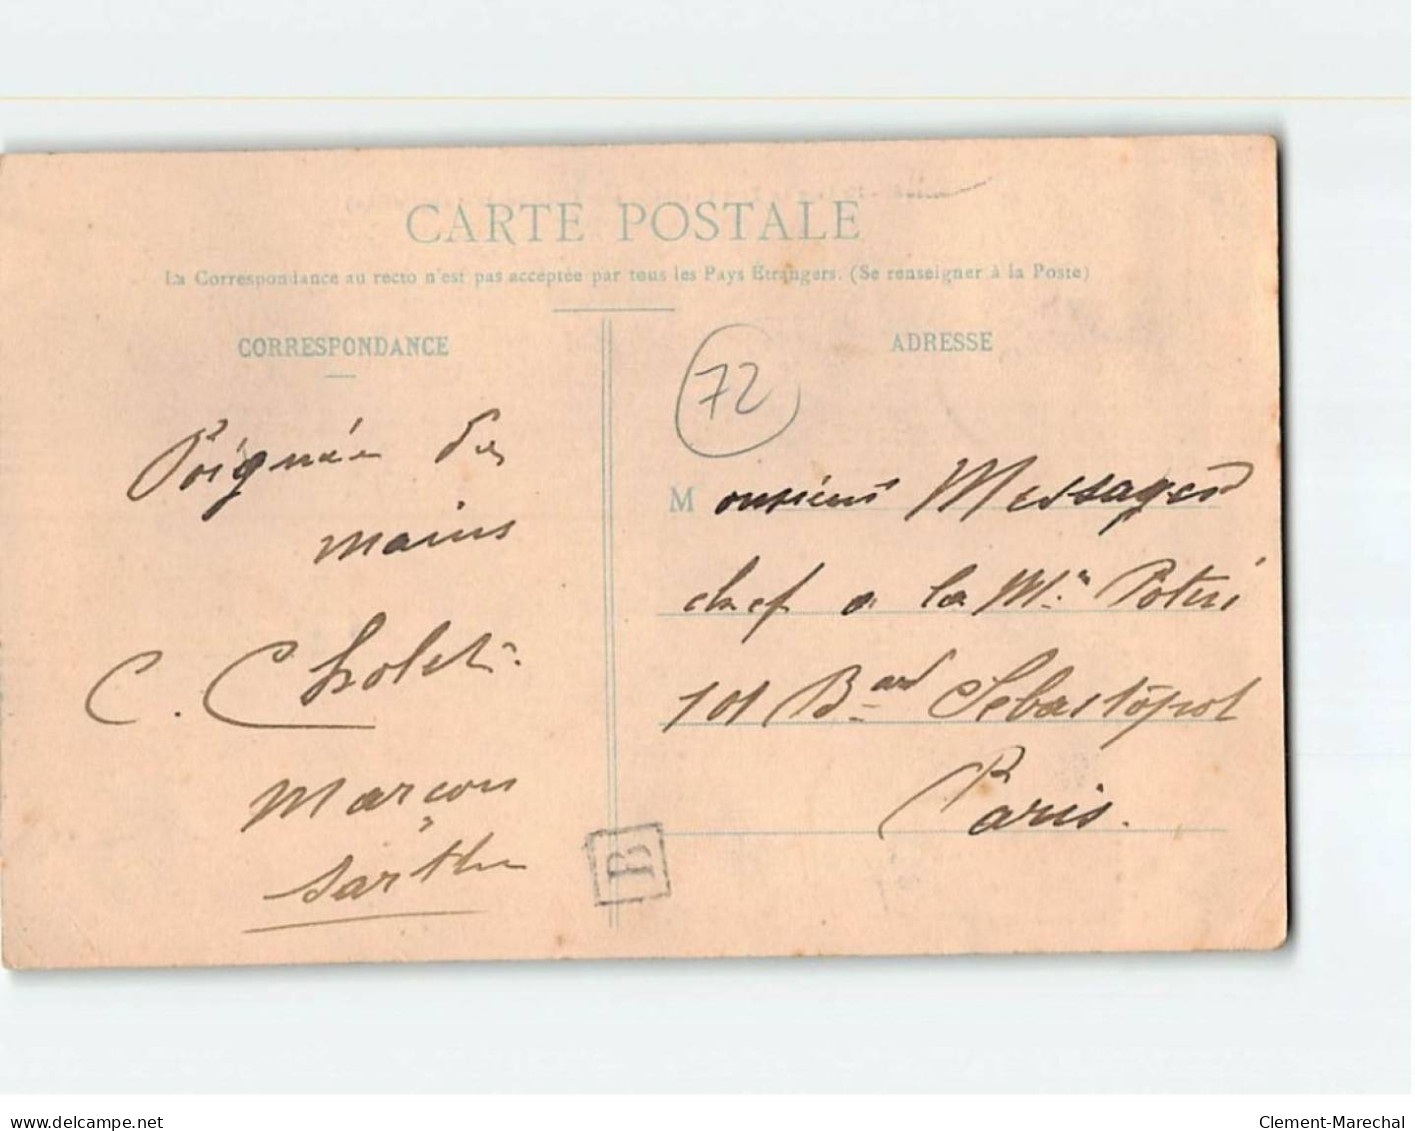 CARTE POSTALE
La Correspondance au recto n'est pas acceptée par tous les Pays Étrangers. (Se renseigner à la Poste)
CORRESPONDANCE
Poignée de
mains
C. Cholet
Marçon
Sarthe
B
72
ADRESSE
Monsieur Messager
chef a la Mon Potin
101 Bard Sebastopol
Paris.
delcampe.net
Clement-Marechal